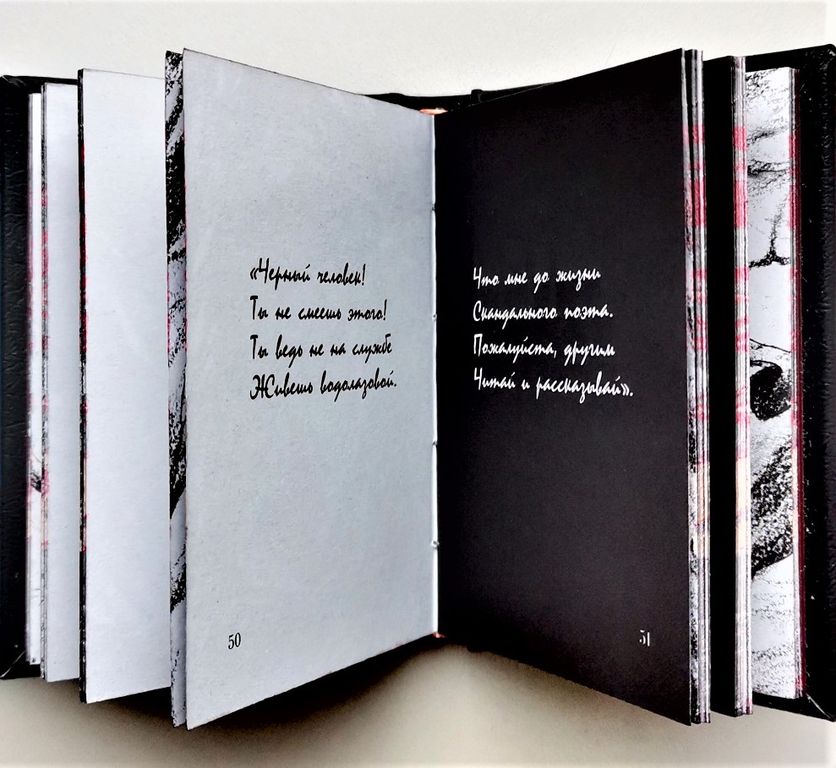 «Черный человек!
Ты не смеешь этого!
Ты ведь не на службе
Живешь водолазовой.
50
Что мне до жизни
Скандального поэта.
Пожалуйста, другим
Читай и рассказывай».
51